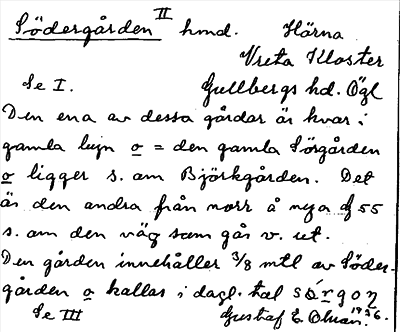 Södergården II hmd. Härna
Vreta Kloster
Se I. Gullbergs hd. Ögl
Den ena av dessa gårdar är kvar i
gamla byn o = den gamla Sörgården
o ligger s. om Björkgården. Det
är den andra från norr å nya 55
s. om den väg som går v. ut.
Den gården innehåller 3/8 mtl av Söder-
gården o kallas i dagl. tal
Se III Gustaf E. Olsson. 1936.